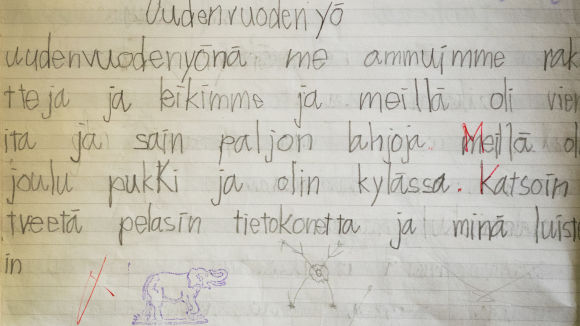 Uudenvuoden yö
uudenvuodenyönä me ammuimme rak
tteja ja leikimme ja meillä oli vier
ita ja sain paljon lahjoja. Meillä ol
joulu pukki ja olin kylässä. Katsoin
tveetä pelasin tietokonetta ja minä luist
in